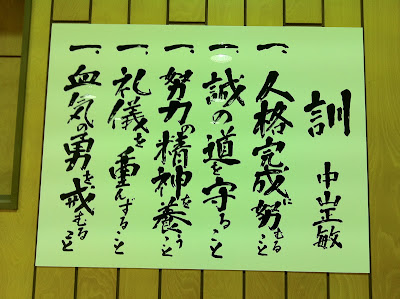 訓
中山正敏
一、人格完成に努むること
一、誠の道を守ること
一、努力の精神を養うこと
一、礼儀を重んずること
一、血気の勇を戒むること